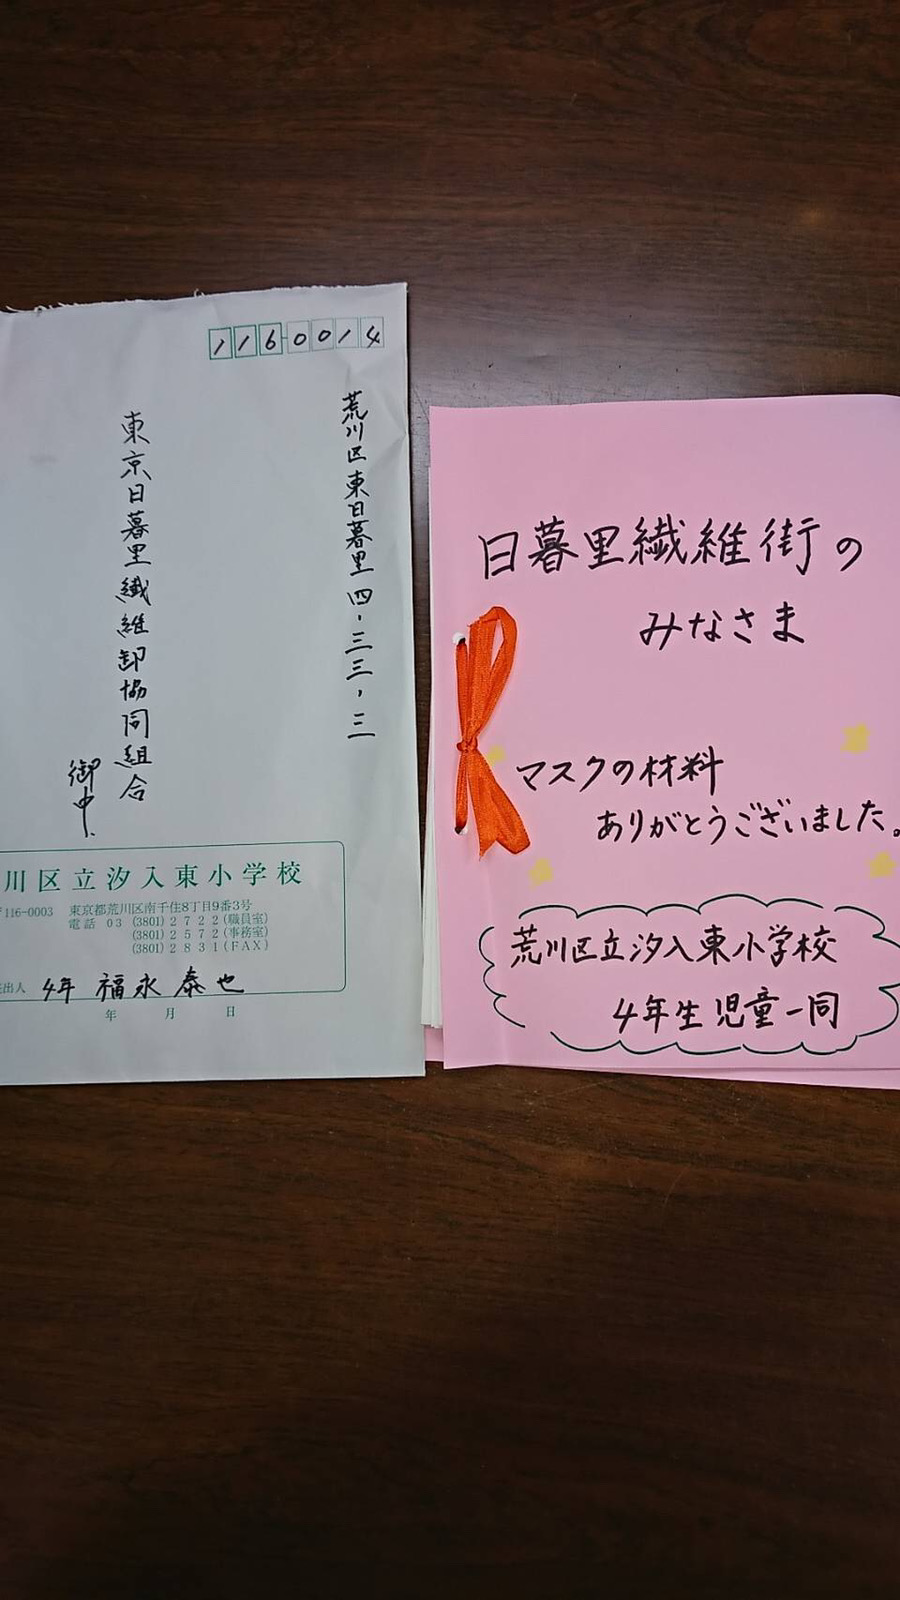 1160014
荒川区東日暮里四・三三・三
東京日暮里繊維卸協同組合
御中
川区立汐入東小学校
〒116-0003 東京都荒川区南千住8丁目9番3号
電話 03 (3801) 2722 (職員室)
(3801) 2572 (事務室)
(3801) 2831 (FAX)
出人 4年 福永泰也
年 月 日
日暮里繊維街の
みなさま
マスクの材料
ありがとうございました。
荒川区立汐入東小学校
4年生児童一同